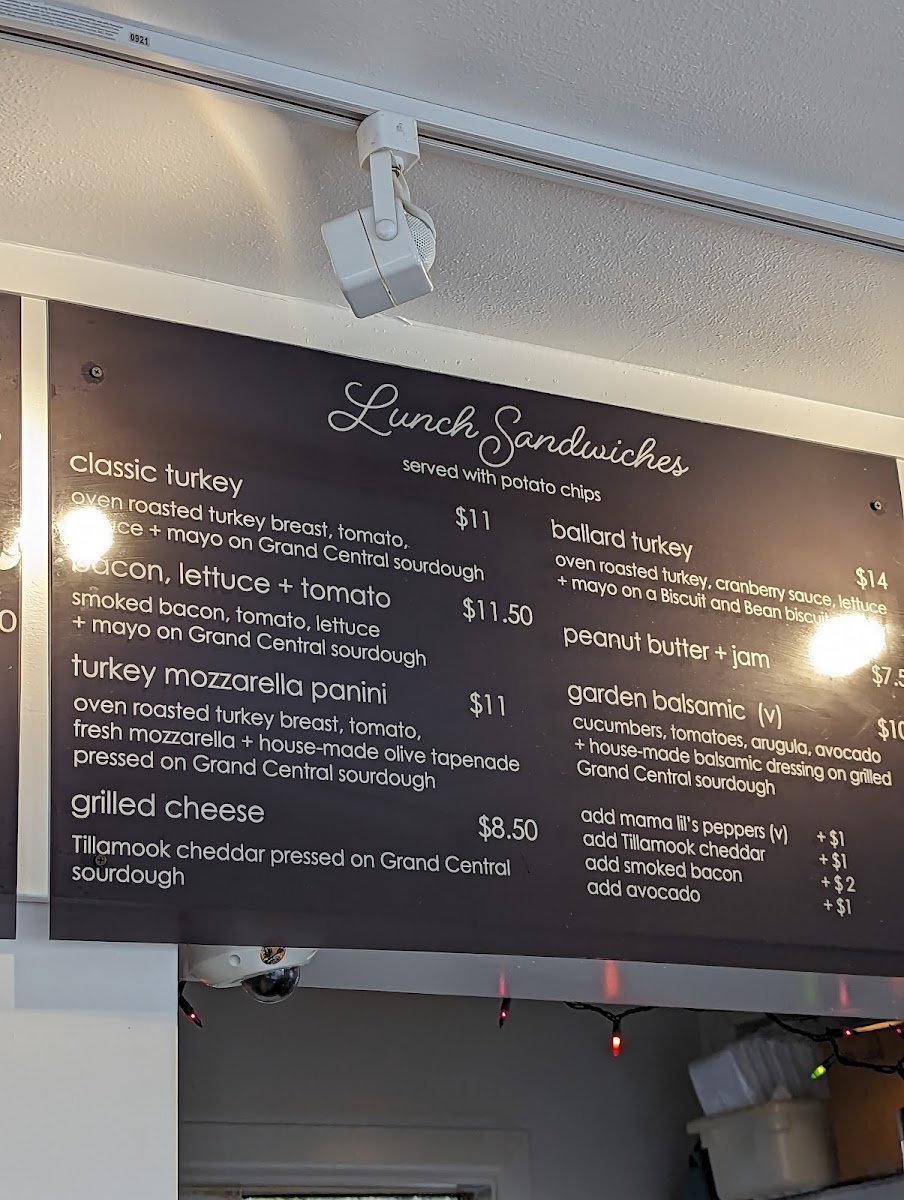 0921
Lunch Sandwiches
served with potato chips
classic turkey
$11
oven roasted turkey breast, tomato,
+ mayo on Grand Central sourdough
bacon, lettuce + tomato
$11.50
smoked bacon, tomato, lettuce
+ mayo on Grand Central sourdough
turkey mozzarella panini
$11
oven roasted turkey breast, tomato,
fresh mozzarella + house-made olive tapenade
pressed on Grand Central sourdough
grilled cheese
$8.50
Tillamook cheddar pressed on Grand Central
sourdough
ballard turkey
$14
oven roasted turkey, cranberry sauce, lettuce
+ mayo on a Biscuit and Bean biscuit
peanut butter + jam
$7.5
garden balsamic (v)
$10
cucumbers, tomatoes, arugula, avocado
+ house-made balsamic dressing on grilled
Grand Central sourdough
add mama lil's peppers (v) +$1
add Tillamook cheddar +$1
add smoked bacon +$2
add avocado +$1